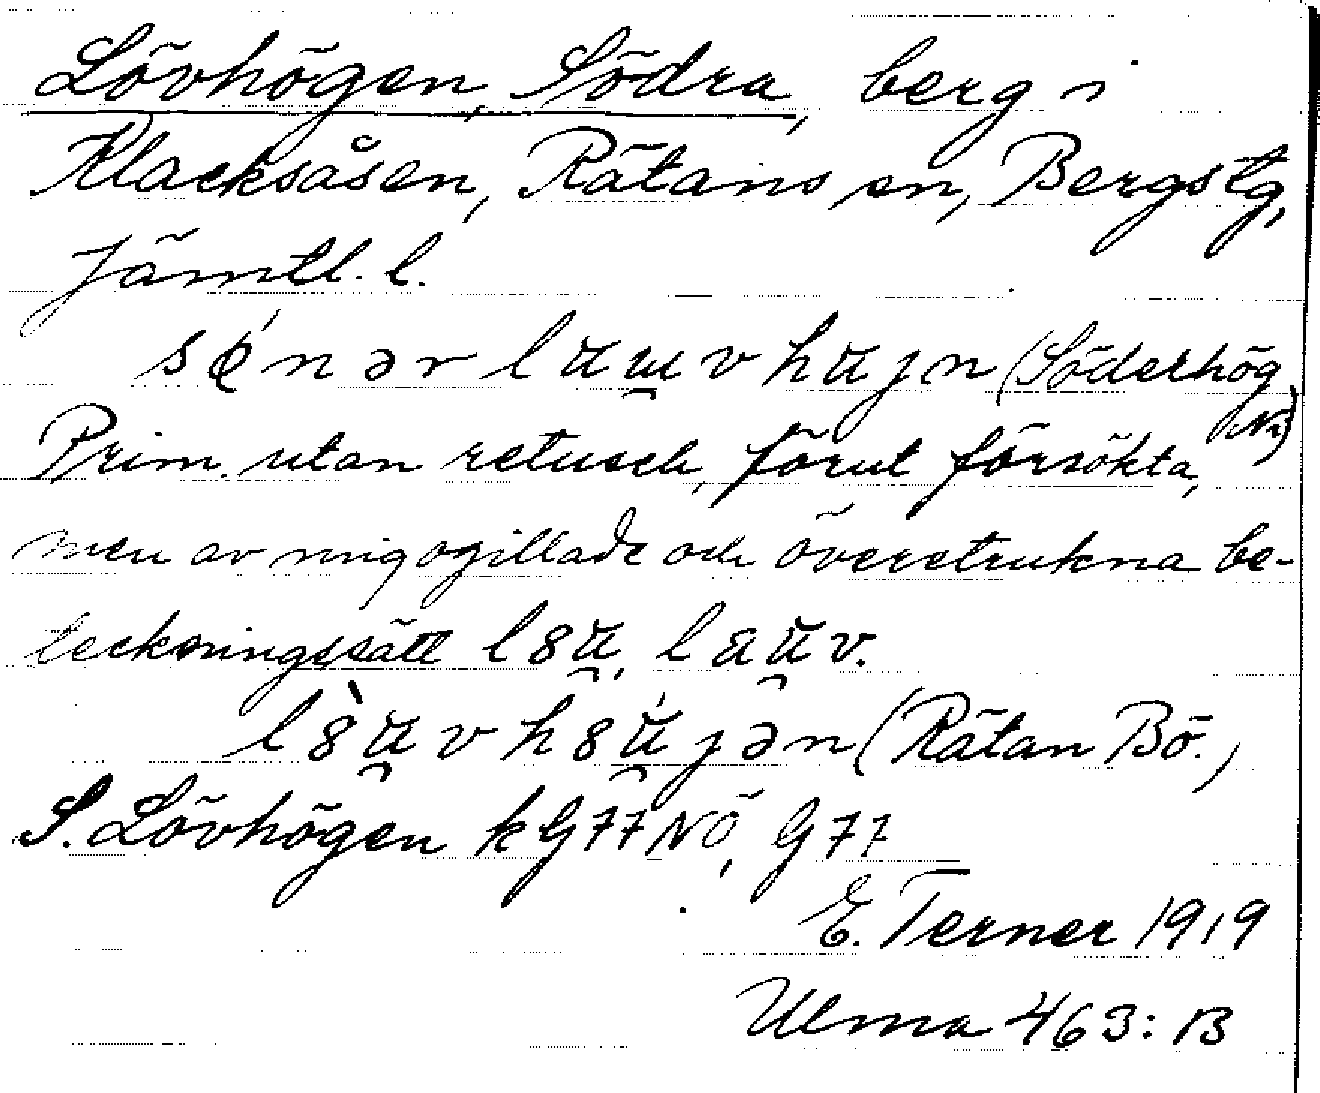 Lövhögen, Södra, berg i
Klacksåsen, Rätans sn, Bergs tg,
Jämtl. l.
(Söderhög
Ni)
Prim. utan retusch, förut försökta,
men av mig ogillade och överstrukna be-
teckningssätt
(Rätan Bö.)
S. Lövhögen kG77NÖ, G77
E. Terner 1919
Ulma 463:B